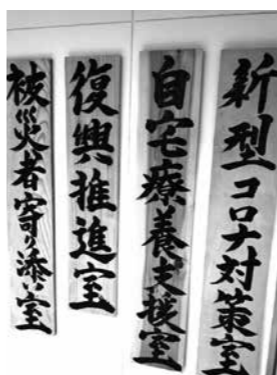 新型コロナ対策室
自宅療養支援室
復興推進室
被災者寄り添い室